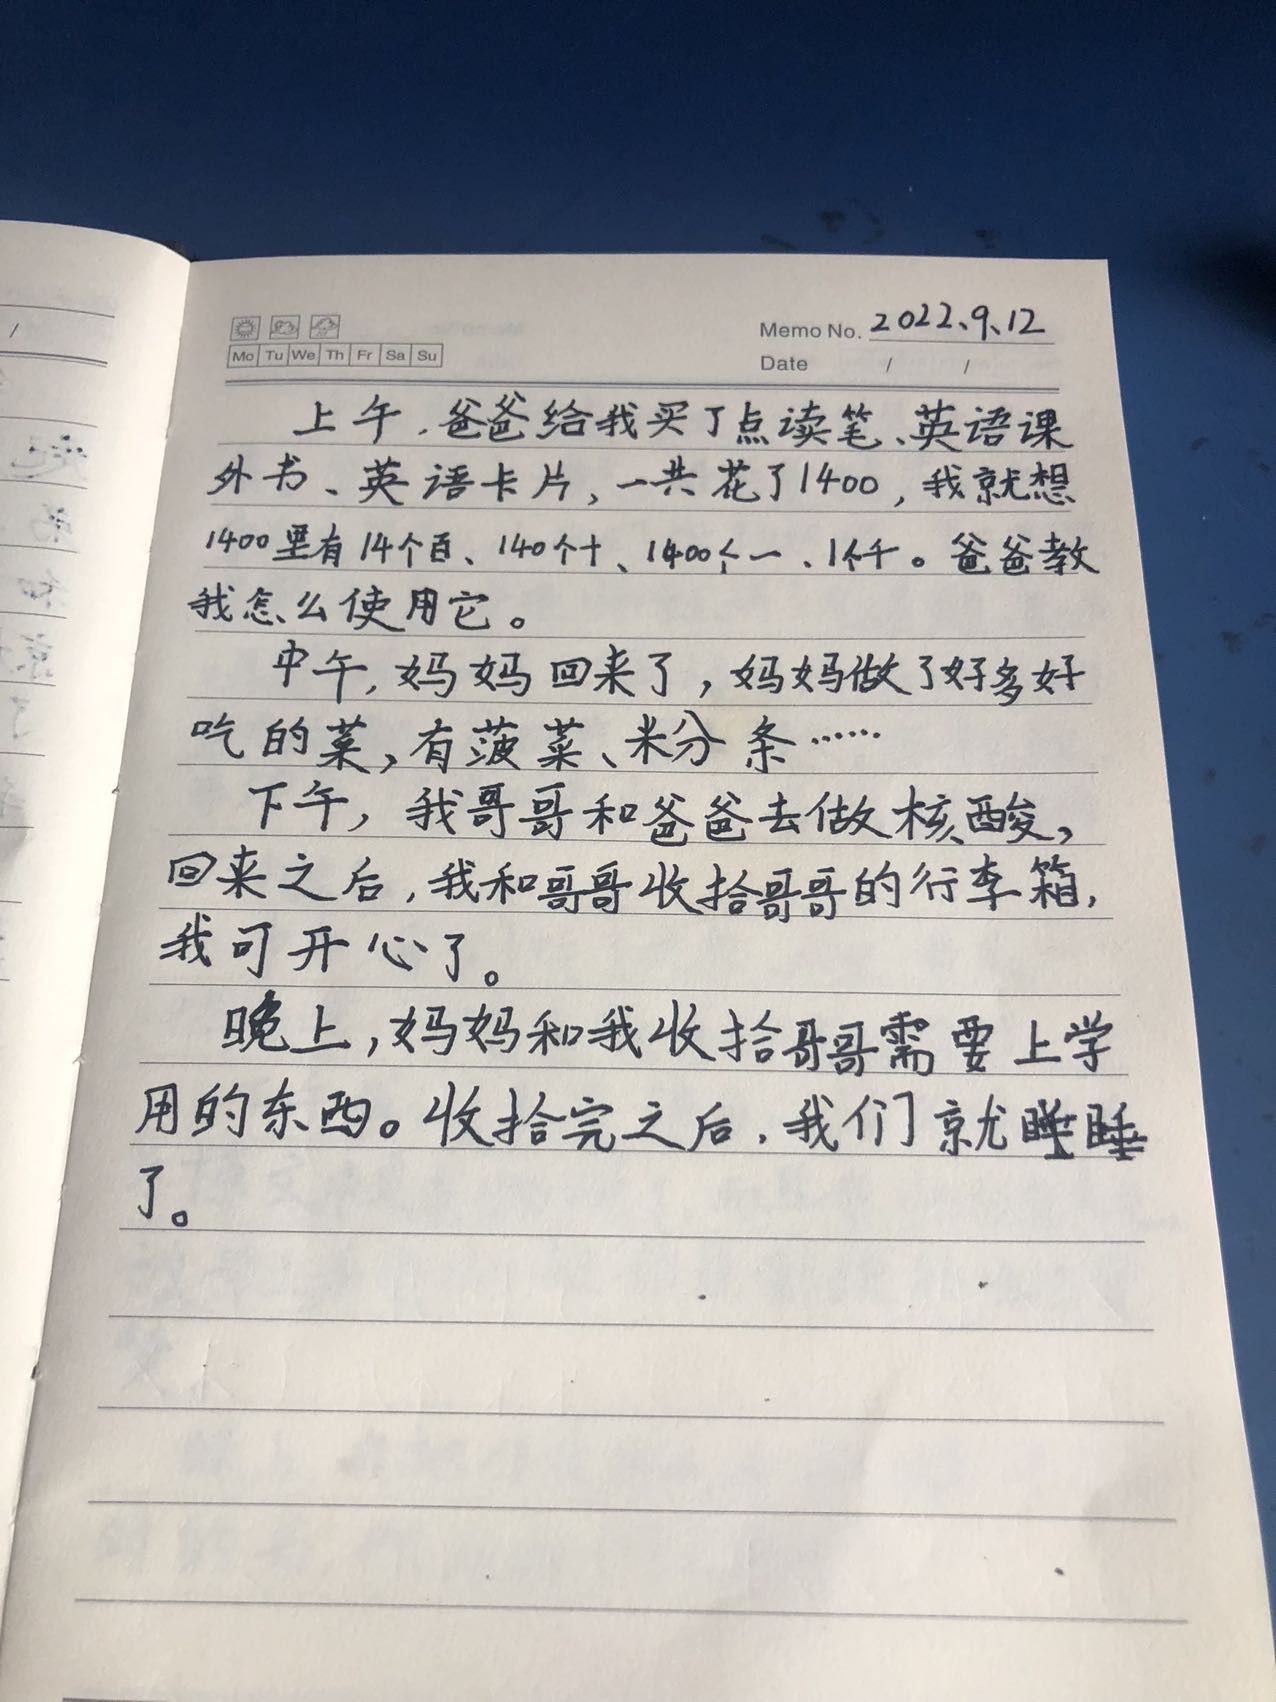 Memo No. 2022、9、12
Mo Tu We Th Fr Sa Su
Date / /
上午，爸爸给我买了点读笔、英语课
外书、英语卡片，一共花了1400，我就想
1400里有14个百、140个十、1400个一、1个千。爸爸教
我怎么使用它。
中午，妈妈回来了，妈妈做了好多好
吃的菜，有菠菜、米分条……
下午，我哥哥和爸爸去做核酸，
回来之后，我和哥哥收拾哥哥的行李箱，
我可开心了。
晚上，妈妈和我收拾哥哥需要上学
用的东西。收拾完之后，我们就睡睡
了。